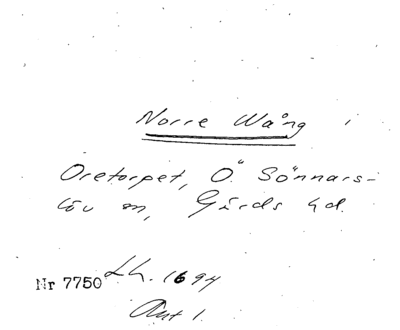 Norre Wång
Oretorpet, Ö. Sönnars-
löv sn, Gärds hd.
Nr 7750 Lh. 1694
Akt 1.